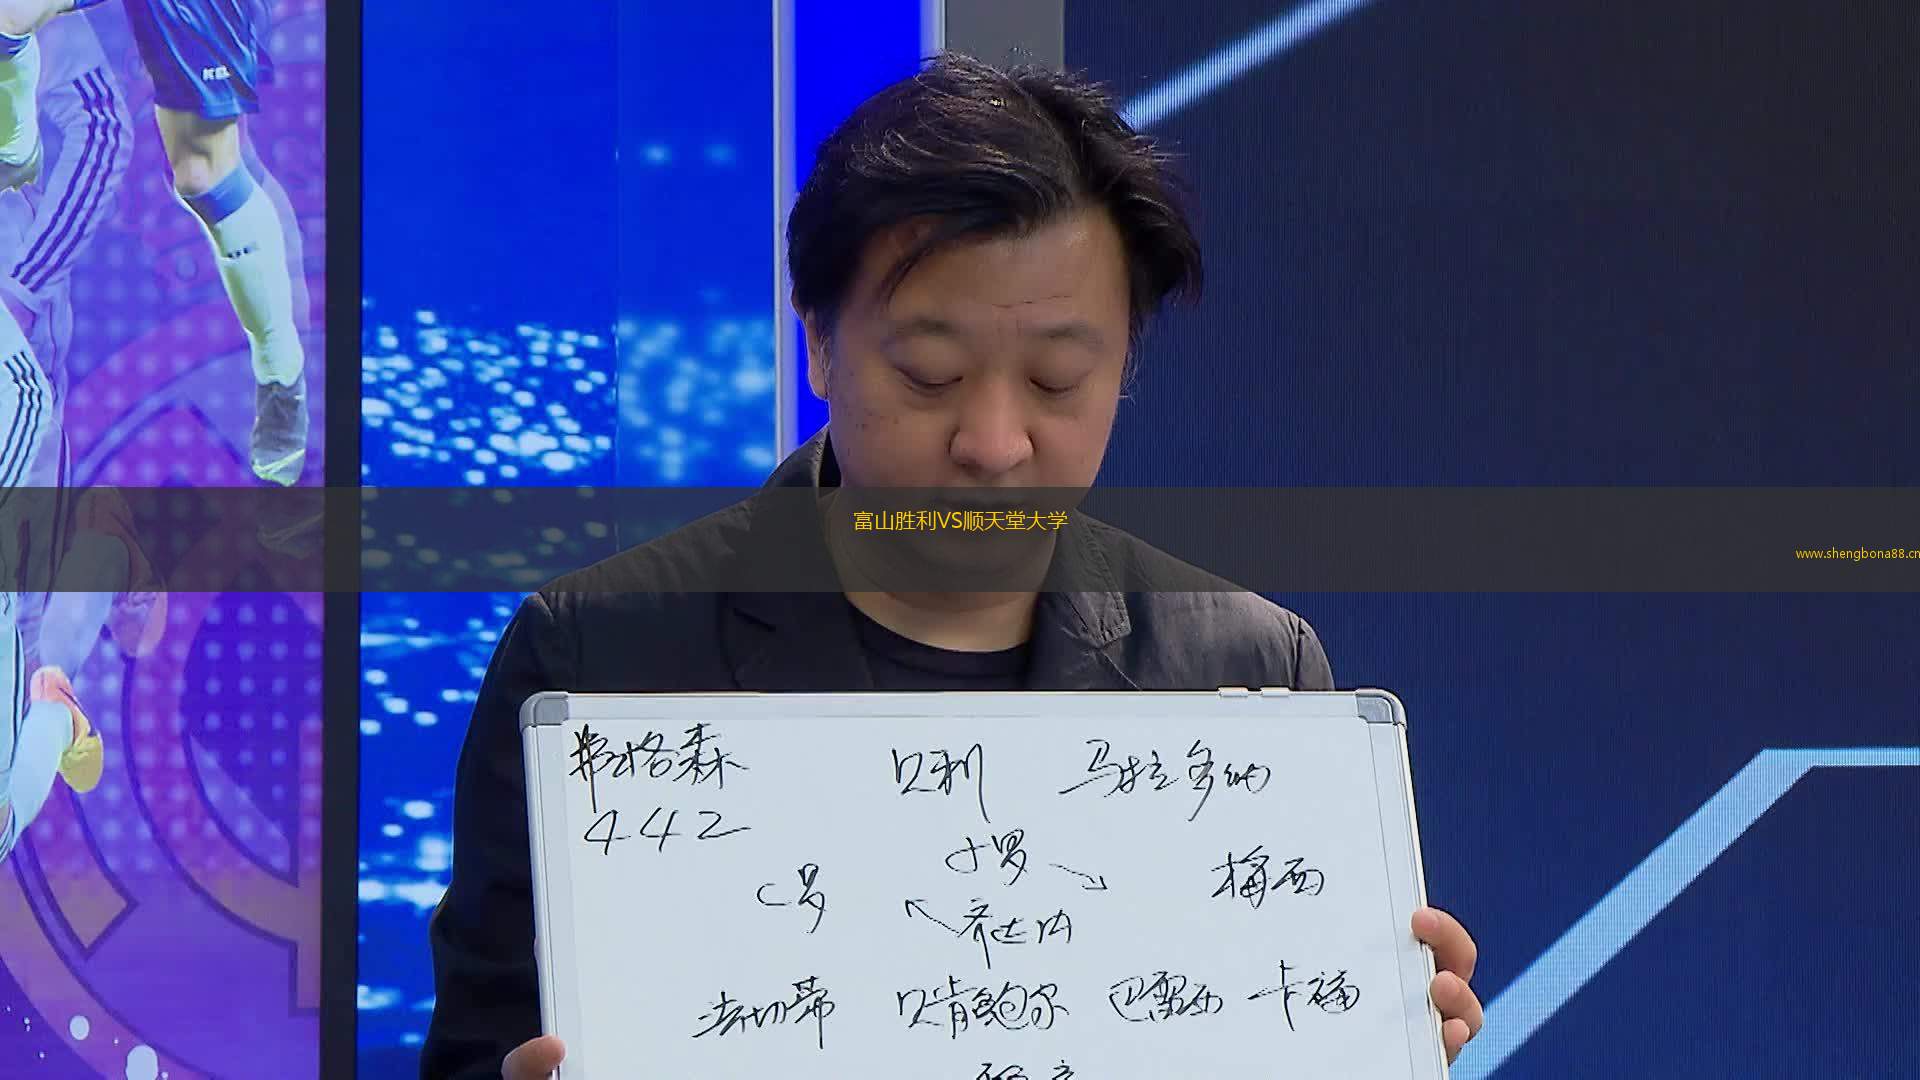 富山胜利VS顺天堂大学
www.shengbona88.cn
弗格森
442
贝利 马拉多纳
小罗
C罗
梅西
齐达内
法切蒂 贝肯鲍尔 巴雷西 卡福